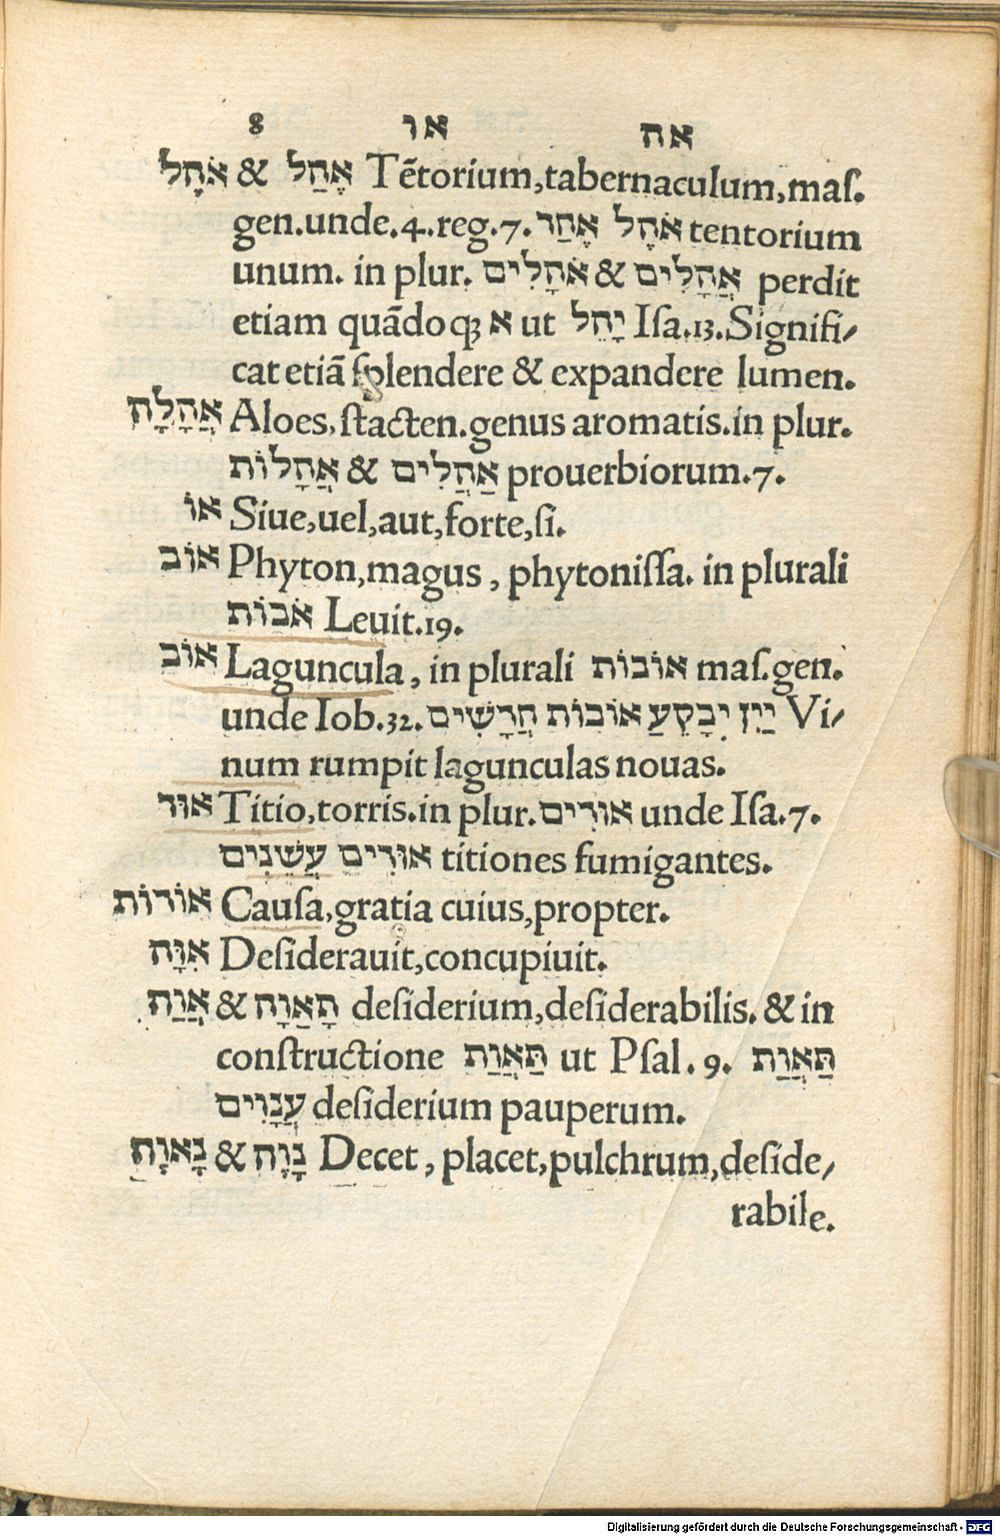 8 או אה
אֹהֶל & אֶהַל Tẽtorium,tabernaculum,maſ.
gen.unde.4.reg.7. אֹהֶל אֶחַר tentorium
unum. in plur. אֹהָלִים & אֲהָלִים perdit
etiam quãdoqꝫ א ut יָהֵל Iſa.13.Signifi/
cat etiã ſplendere & expandere lumen.
אֲהָלָה Aloes,ſtacten.genus aromatis.in plur.
אֲהָלוֹת & אַהֲלִים prouerbiorum.7.
אוֹ Siue,uel,aut,forte,ſi.
אוֹב Phyton,magus, phytoniſſa. in plurali
אֹבוֹת Leuit.19.
אוֹב Laguncula, in plurali אוֹבוֹת maſ.gen.
unde Iob.32. יַיִן יִבָקֵעַ אוֹבוֹת חֲרָשִׁים Vi/
num rumpit lagunculas nouas.
אוּר Titio,torris.in plur. אוּרִים unde Iſa.7.
אוּרִים עֲשֵׁנִים titiones fumigantes.
אוֹדוֹת Cauſa,gratia cuius,propter.
אִוָּה Deſiderauit,concupiuit.
אֲוַת & תָאַוָה deſiderium,deſiderabilis. & in
conſtructione תַּאֲוַת ut Pſal. 9. תַּאֲוַת
עֲנָוִים deſiderium pauperum.
נָאוָה & נָוָה Decet, placet,pulchrum,deſide/
rabile.
Digitalisierung gefördert durch die Deutsche Forschungsgemeinschaft - DFG